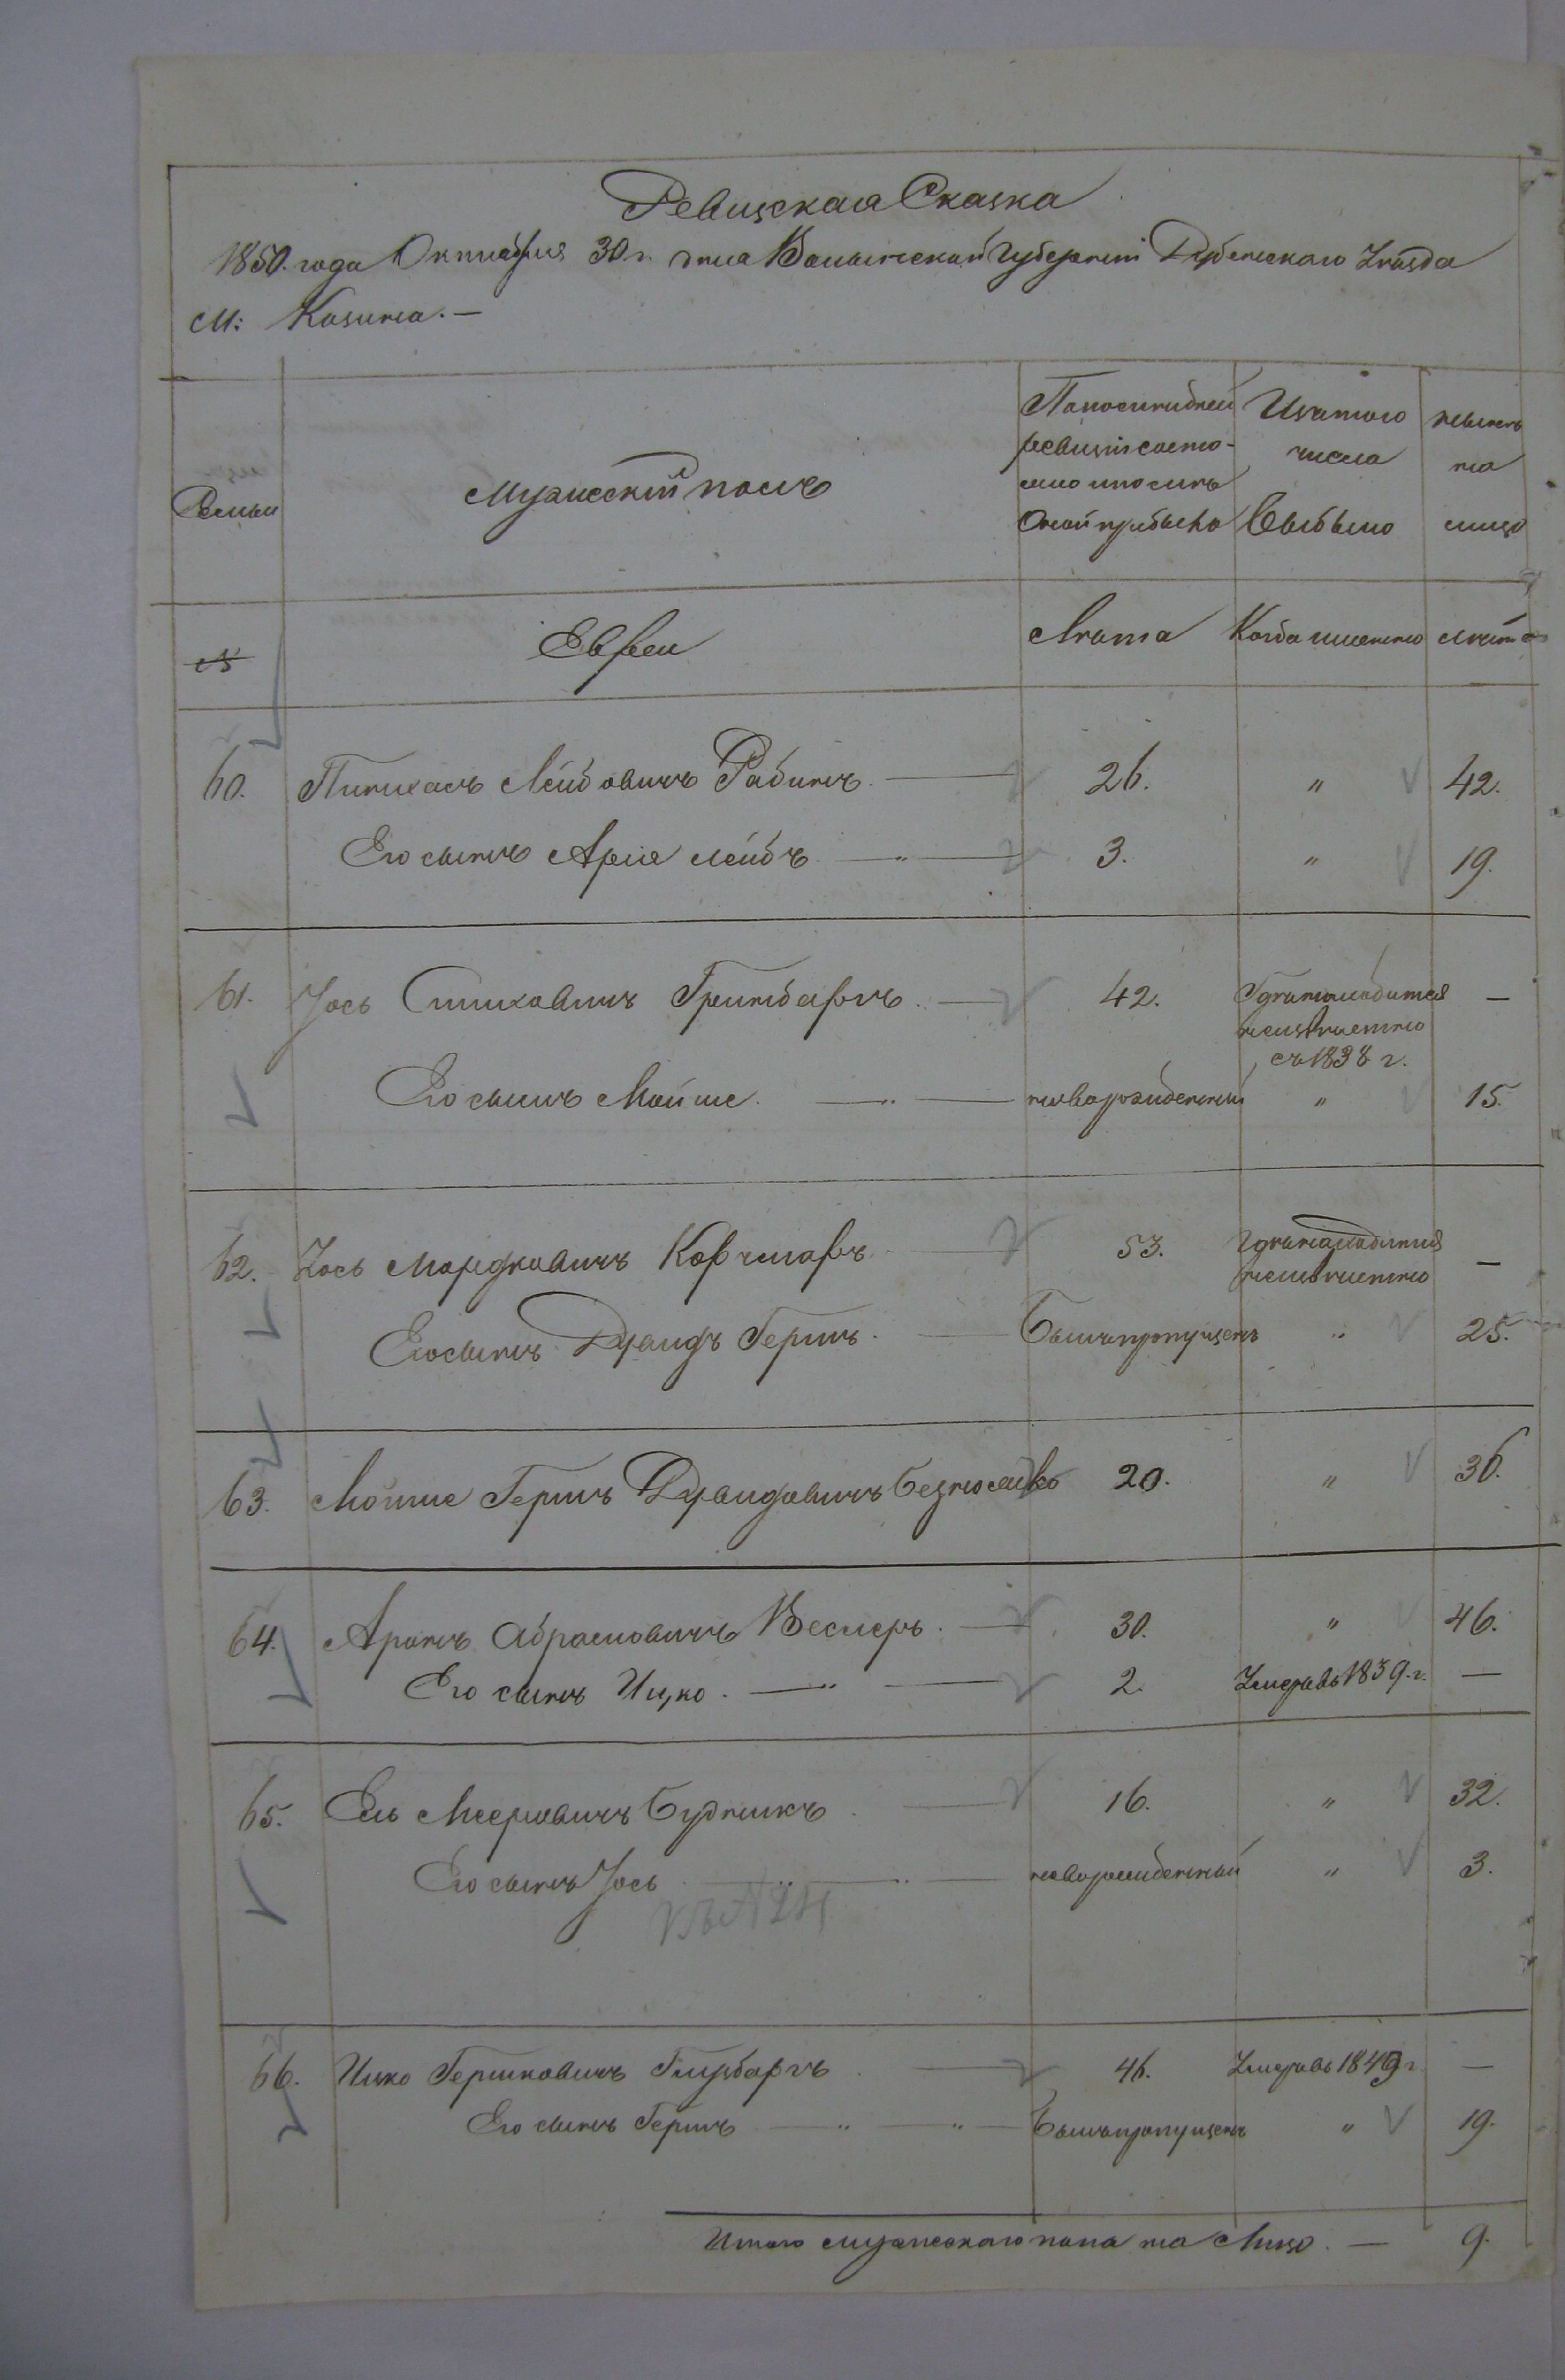 Ревизская Сказка
1850. года Октября 30 г. дня Волынской Губерніи Дубенскаго Уезда
М: Козина. —
Семьи
Мужескій полъ
По последней
ревизіи состо-
яло и после
оной прибыло
Изъ того
числа
выбыло
ныне
на
лицо
№
Евреи
Лета
Когда именно
лета
60. Пинхасъ Лейбовичъ Рабинъ. — 26. " 42.
Его сынъ Аріе Лейбъ — " — 3. " 19.
61. Іось Сим­ховичъ Гринбаргъ. — 42. В неизвестно —
съ 1838 г.
Его сынъ Мойше. — " — новорожденный " 15.
62. Іось Мордковичъ Корчмаръ — 53. неизвестно —
Его сынъ Дувидъ Гершъ. — Былъ пропущенъ " 25.
63. Мойше Гершъ Дувидовичъ Безноско 20. " 36.
64. Аронъ Абрамовичъ Веснеръ. — 30. " 46.
Его сынъ Ицко. — " — 2. Умеръ въ 1839. г. —
65. Ель Мееровичъ Будникъ — 16. " 32.
Его сынъ Іось — " — " — новорожденный " 3.
66. Ицко Гершковичъ Гинзбаргъ — 46. Умеръ въ 1849 г. —
Его сынъ Гершъ — " — " — Былъ пропущенъ " 19.
Итого мужескаго пола на Лицо. — 9.